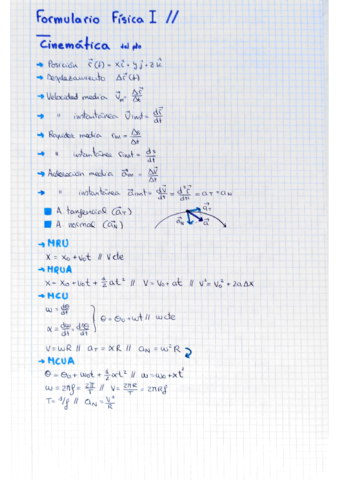 Formulario Física I //
Cinemática del pto
→ Posición r⃗(t) = xi⃗ + yj⃗ + zk⃗
→ Desplazamiento Δr⃗(t)
→ Velocidad media v⃗m = Δr⃗/Δt
→ " instantánea v⃗inst = dr⃗/dt
→ Rapidez media rm = Δs/Δt
→ " instantánea rinst = ds/dt
→ Aceleración media a⃗m = Δv⃗/Δt
→ " instantánea a⃗inst = dv⃗/dt = d²r⃗/dt² = aT + aN
■ A. tangencial (a⃗T)
■ A. normal (a⃗N)
a⃗T
a⃗N
a⃗
→ MRU
x = x₀ + v₀t // v cte
→ MRUA
x = x₀ + v₀t + 1/2 at² // v = v₀ + at // v² = v₀² + 2aΔx
→ MCU
ω = dθ/dt
α = dω/dt = d²θ/dt²
θ = θ₀ + ωt // ω cte
v = ωR // aT = αR // aN = ω²R
→ MCUA
θ = θ₀ + ω₀t + 1/2 αt² // ω = ω₀ + αt
ω = 2πf = 2π/T // v = 2πR/T = 2πRf
T = 1/f // aN = v²/R